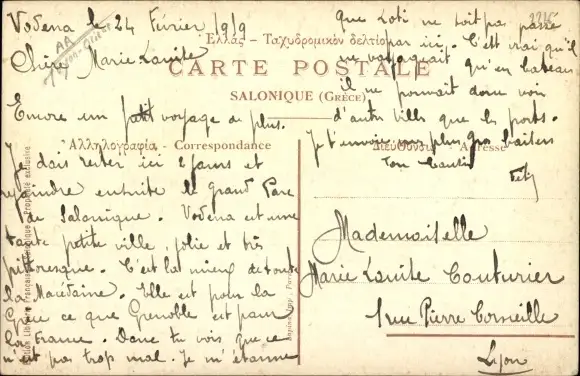 Vodena le 24 Février 1919
Chère Marie Louise
Encore un petit voyage de plus.
Je dois rester ici 2 jours et
rejoindre ensuite le grand Parc
de Salonique. Vodena est une
toute petite ville, jolie et très
pittoresque. C'est la mieux de toute
la Macédoine. Elle est pour la
Grèce ce que Grenoble est pour
la France. Donc tu vois que ce
n'est pas trop mal. Je m'étonne
que Loti ne soit pas passé
par ici. C'est vrai qu'il
ne voyageait qu'en bateau
il ne pouvait donc voir
d'autres villes que les ports.
Je t'envoie un plus gros baisers
Ton cousin
Ελλάς - Ταχυδρομικόν δελτίον
CARTE POSTALE
SALONIQUE (GRÈCE)
Αλληλογραφία - Correspondance
Διεύθυνσις - Adresse
Mademoiselle
Marie Louise Couturier
1 rue Pierre Corneille
Lyon